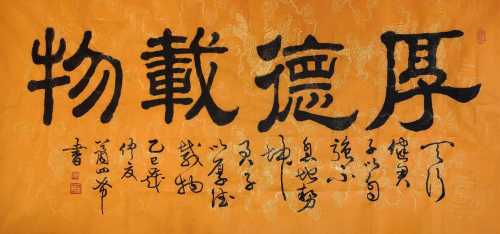 厚德載物
天行
健君
子以自
強不
息地勢
坤
君子
以厚德
載物
乙巳歲
仲夏
蕭四爺
書